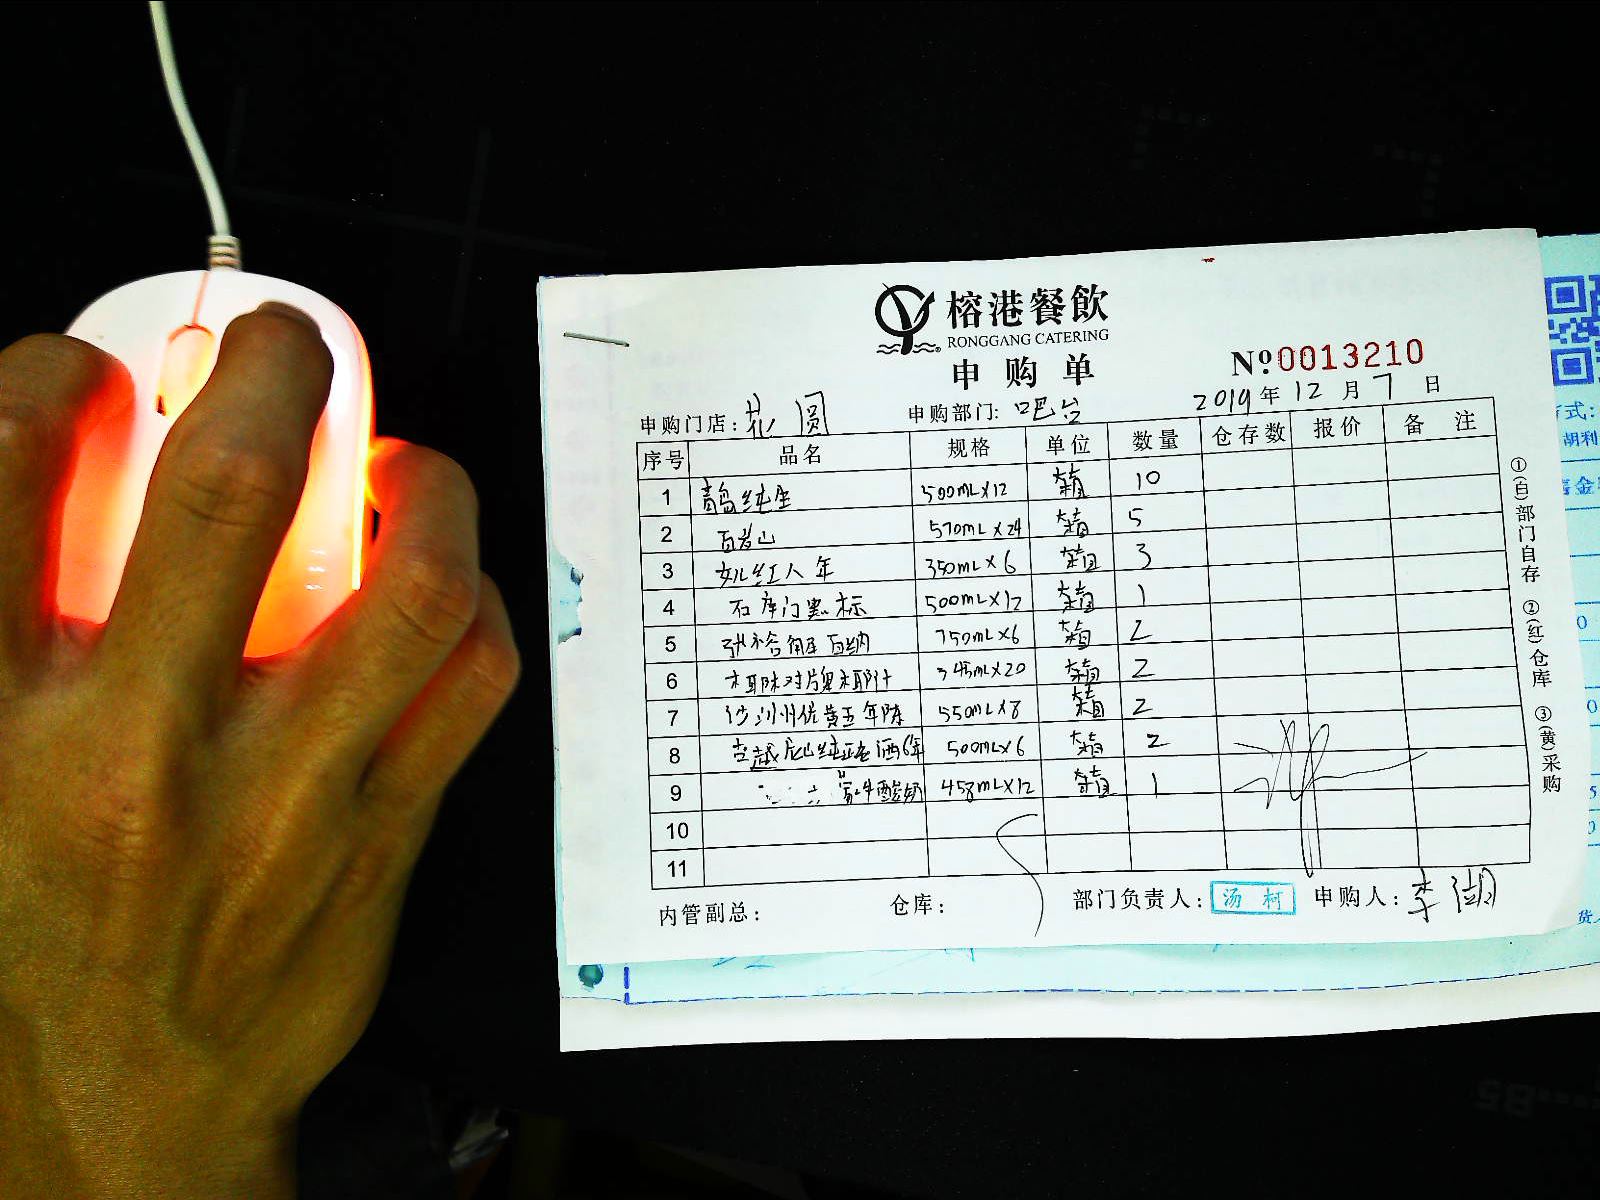 榕港餐飲
RONGGANG CATERING
申购单
Nº0013210
2019年12月7日
申购门店：花圆 申购部门：吧台
序号 品名 规格 单位 数量 仓存数 报价 备注
1 青岛纯生 500mL×12 箱 10
2 百岁山 570mL×24 箱 5
3 女儿红八年 350mL×6 箱 3
4 石库门黑标 500mL×12 箱 1
5 张裕解百纳 750mL×6 箱 2
6 椰牌对牌椰汁 345mL×20 箱 2
7 沙洲优黄五年陈 550mL×8 箱 2
8 古越龙山纯正老酒6年 500mL×6 箱 2
9 蒙牛酸奶 458mL×12 箱 1
10
11
内管副总： 仓库： 部门负责人：汤柯 申购人：李湖
①(白)部门自存 ②(红)仓库 ③(黄)采购